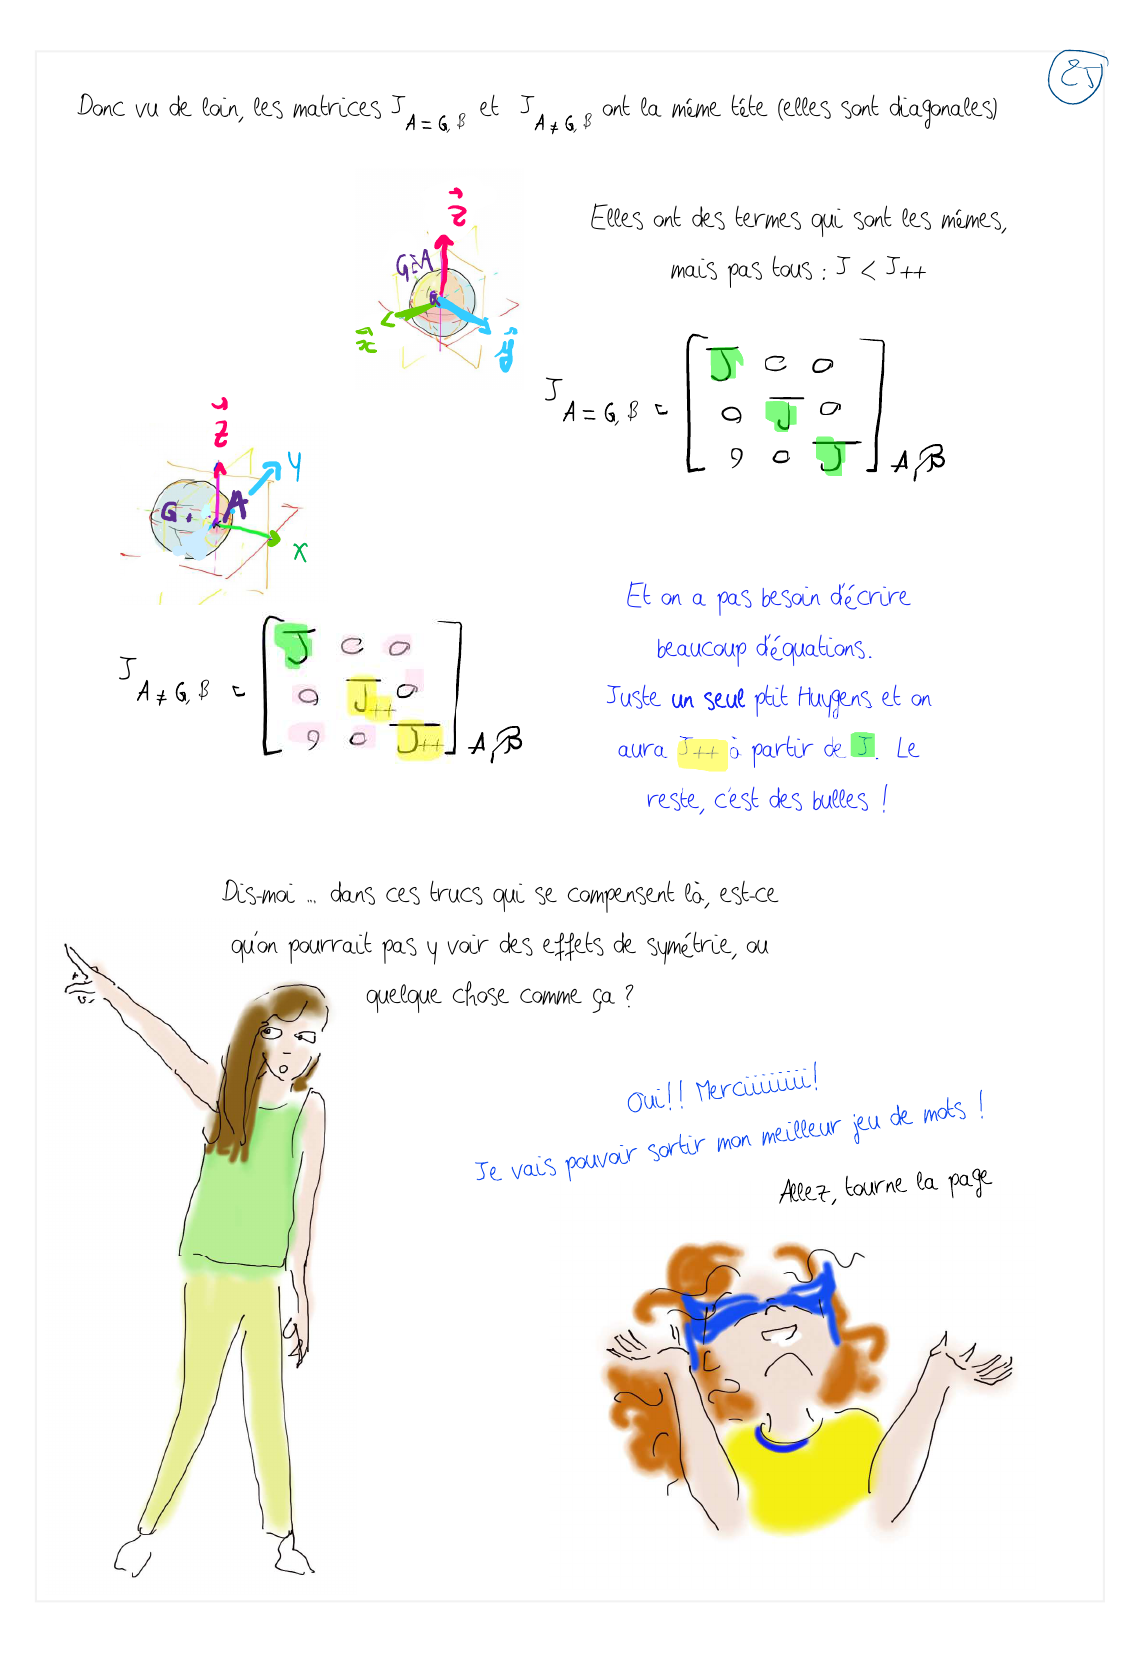 25
Donc vu de loin, les matrices J A = G, B et J A ≠ G, B ont la même tête (elles sont diagonales)
Elles ont des termes qui sont les mêmes,
mais pas tous : J < J++
z
G=A
x
y
J A = G, B = [ J 0 0
0 J 0
0 0 J ] A, B
z
y
G . A
x
J A ≠ G, B = [ J 0 0
0 J++ 0
0 0 J++ ] A, B
Et on a pas besoin d'écrire
beaucoup d'équations.
Juste un seul ptit Huygens et on
aura J++ à partir de J. Le
reste, c'est des bulles !
Dis-moi ... dans ces trucs qui se compensent là, est-ce
qu'on pourrait pas y voir des effets de symétrie, ou
quelque chose comme ça ?
Oui!! Merciiiiiiiii!
Je vais pouvoir sortir mon meilleur jeu de mots !
Allez, tourne la page